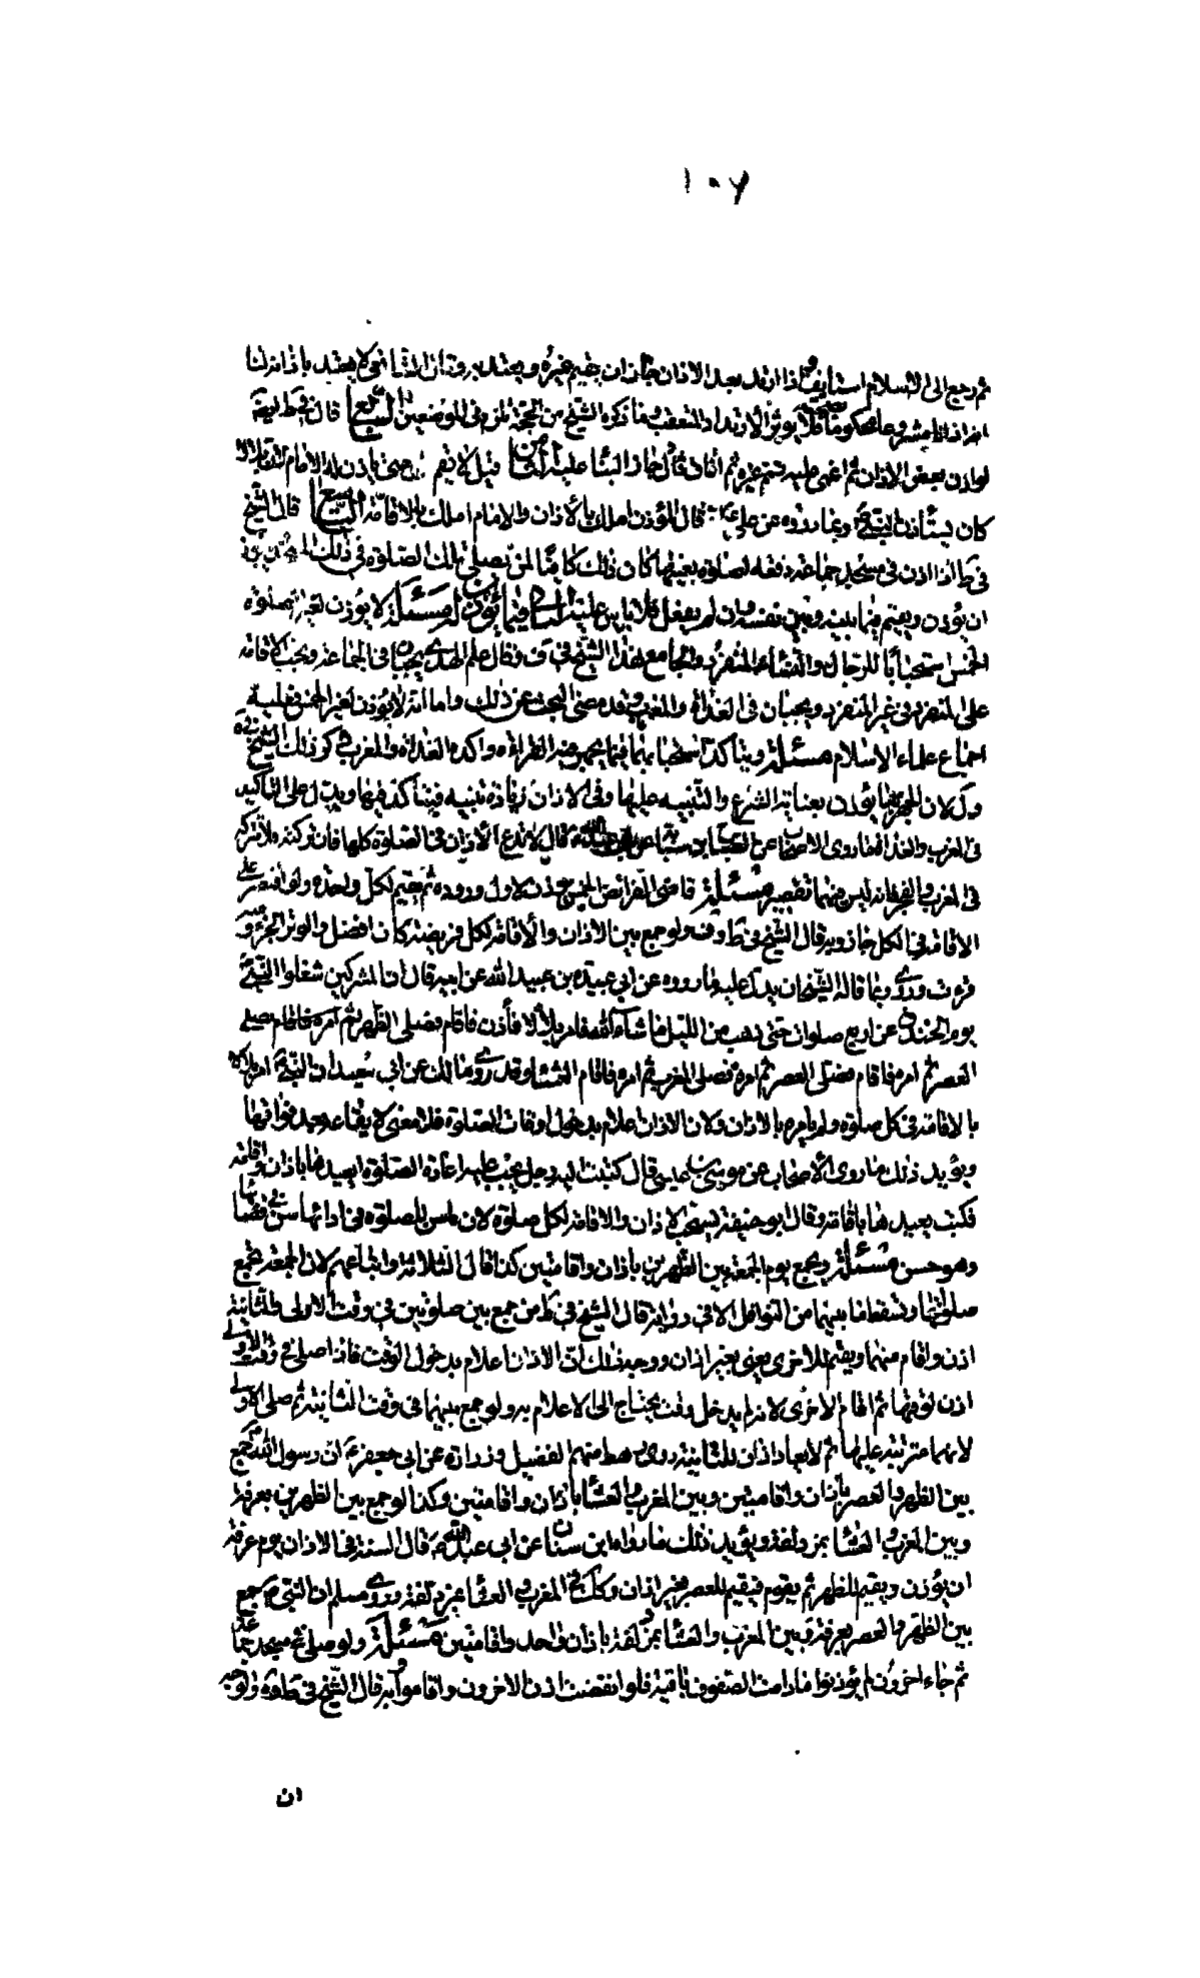 ١٠٧
ثم رجع الى الاسلام استأنف فاذا ارتد بعد الاذان جاز ان يقيم غيره ويعتد به وقال الشافعي لا يعتد باذانه لنا
انه اذا مشروعا محكوما بصحته فلا يؤثر الارتداد المتعقب وما ذكره الشيخ من الحجة لزم في الموضعين السابع قال في ط اليه
لو اذن بعض الاذان ثم اغمى عليه تمم غيره ثم افاق قال جاز البناء عليه الثامن قيل لا يقيم حتى ياذن له الامام لان بلالا
كان يستأذن النبي وبما رووه عن علي قال المؤذن املك بالاذان والامام املك بالاقامة التاسع قال الشيخ
في ط اذا اذن في مسجد جماعة دفعة لصلوة بعينها كان ذلك كافيا لمن يصلي تلك الصلوة في ذلك المسجد ويجوز
ان يؤذن ويقيم فيما بينه وبين نفسه وان لم يفعل فلا باس عليه الثاني فيما يؤذن له مسئلة لا يؤذن لغير الصلوة
الخمس استحبابا للرجال والنساء المنفرد والجامع هذا الشيخ في ف وقال علم الهدى يجبان في الجماعة ويجب الاقامة
على المنفرد في غير المنفرد ويجبان في الغداة والمغرب وقد مضى البحث عن ذلك واما انه لا يؤذن لغير الخمس فعليه
اجماع علماء الاسلام مسئلة ويتأكد استحبابهما فيما يجهر فيه القراءة واكده الغداة والمغرب ذكر ذلك الشيخ في
ول لان الجهر فيما يؤذن بعناية الشرع والتنبيه عليها وفي الاذان زيادة تنبيه فيتأكد فيها ويدل على التاكيد
في المغرب والغداة ما روى الاصحاب عن الصباح بن سيابة عن ابي عبد الله قال لا تدع الاذان في الصلوة كلها فان تركته فلا تتركه
في المغرب والفجر فانه ليس فيهما تقصير مسئلة قاضي الفرائض الخمس يؤذن لاول ورده ثم يقيم لكل واحدة ولو اقتصر على
الاقامة في الكل جاز وبه قال الشيخ في ط وف ولو جمع بين الاذان والاقامة لكل فريضة كان افضل والوتر الجزء
قرءت وروى وبما قاله الشيخان يدل عليه ما رووه عن ابي عبيدة بن عبيد الله عن ابيه قال ان المشركين شغلوا النبي
يوم الخندق عن اربع صلوات حتى ذهب من الليل ما شاء الله فامر بلالا فأذن فاقام فصلى الظهر ثم امره فاقام فصلى
العصر ثم امره فاقام فصلى العصر ثم امره فصلى المغرب ثم امره فاقام العشاء وقد روى مالك عن ابي سعيد ان النبي امر بلالا
بالاقامة في كل صلوة ولم يامره بالاذان ولان الاذان اعلام بدخول اوقات الصلوة فلا معنى لايقاعه بعد فواتها
ويؤيد ذلك ما روى الاصحاب عن موسى بن عيسى قال كتبت اليه رجل يجب عليه اعادة الصلوة ايعيدها باذان واقامة
فكتب يعيدها باقامة وقال ابو حنيفة يستحب الاذان والاقامة لكل صلوة لان ما سن للصلوة في ادائها سن في قضائها
وهو حسن مسئلة ويجمع يوم الجمعة بين الظهرين باذان واقامتين كذا قال الثلاثة واتباعهم لان الجمعة يجمع
صلوتها وتسقط ما بينهما من النوافل الا في رواية قال الشيخ في ط من جمع بين صلوتين في وقت الاولى والثانية
اذن واقام منهما ويقيم للاخرى يعني بغير اذان ووجه ذلك ان الاذان اعلام بدخول الوقت فاذا صلى في وقت الاولى
اذن لوقتها ثم اقام للاخرى لانه لم يدخل وقت يحتاج الى الاعلام به ولو جمع بينهما في وقت الثانية ثم صلى الاولى
لانها مترتبة عليها ثم لا يعاد اذان للثانية روى رهط منهم الفضيل وزرارة عن ابي جعفر ان رسول الله جمع
بين الظهر والعصر باذان واقامتين وبين المغرب والعشاء باذان واقامتين وكذا لو جمع بين الظهرين بعرفة
وبين المغرب والعشاء بمزدلفة ويؤيد ذلك ما رواه ابن سنان عن ابي عبد الله قال السنة في الاذان يوم عرفة
ان يؤذن ويقيم للظهر ثم يقوم فيقيم للعصر بغير اذان وكذلك في المغرب والعشاء بمزدلفة وروى مسلم ان النبي جمع
بين الظهر والعصر بعرفة وبين المغرب والعشاء بمزدلفة باذان واحد واقامتين مسئلة ولو صلى في مسجد جماعة
ثم جاء اخرون لم يؤذنوا ما دامت الصفوف باقية فلو انفضت اذن الاخرون واقاموا وبه قال الشيخ في ط
ان